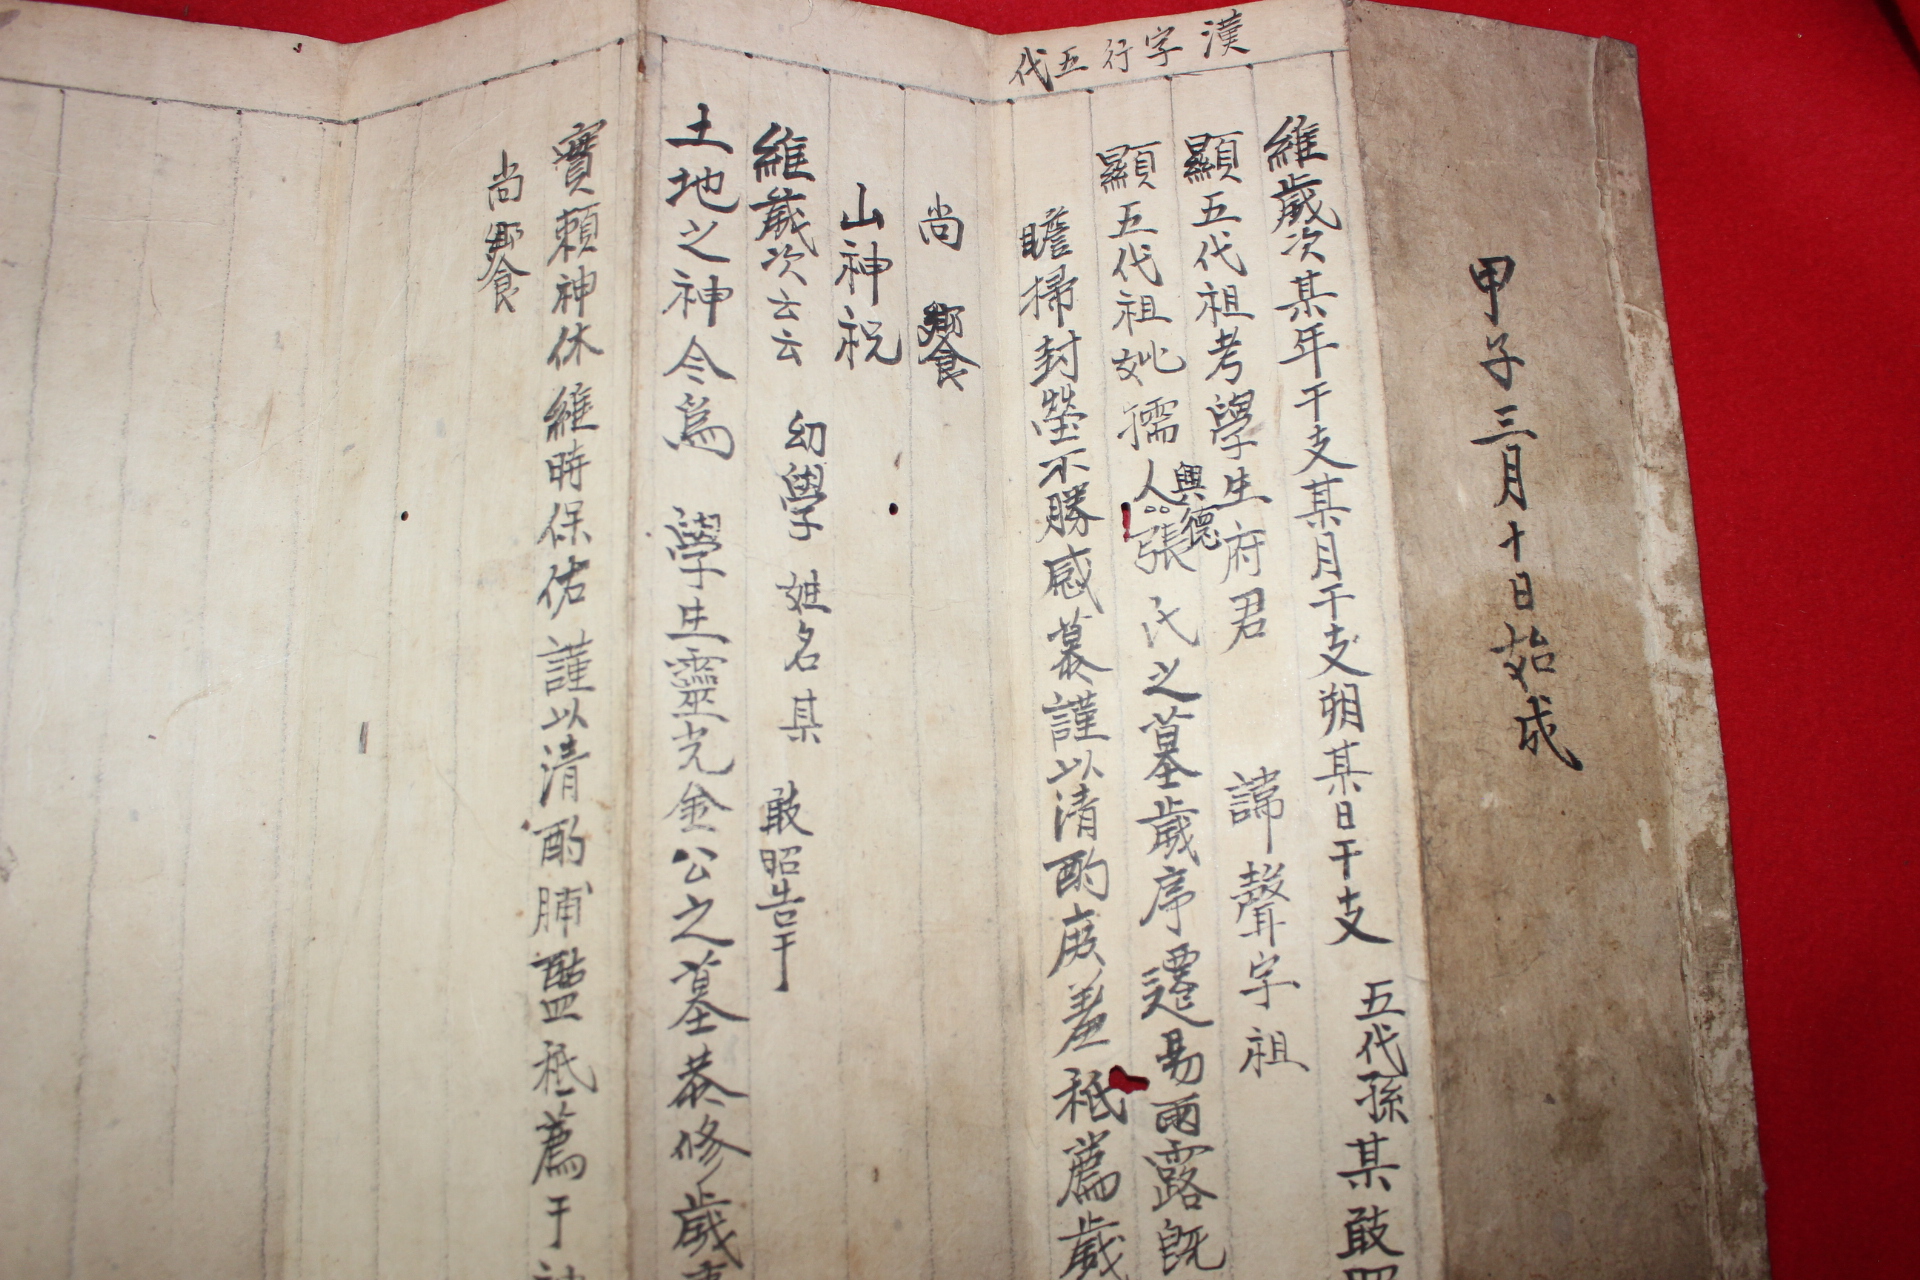 甲子三月十日始成
漢字行五代
維歲次某年干支某月干支朔某日干支 五代孫某敢
顯五代祖考學生府君 諱聲字祖
顯五代祖妣孺人興德張氏之墓歲序遷易雨露旣
瞻掃封塋不勝感慕謹以清酌庶羞祗薦歲
尚 饗
山神祝
維歲次云云 幼學 姓名某 敢昭告于
土地之神今爲 學生靈光金公之墓恭修歲
實賴神休維時保佑謹以清酌脯醢祗薦于
尚饗